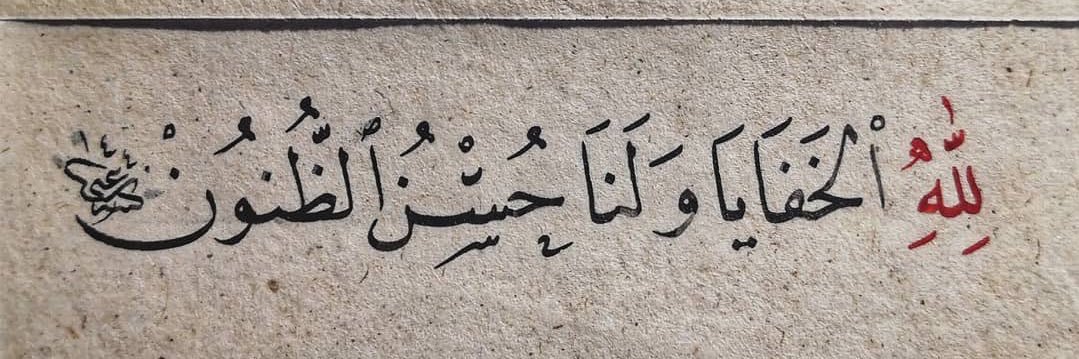 لِلّٰهِ الْخَفَايَا وَلَنَا حُسْنُ الظُّنُونْ